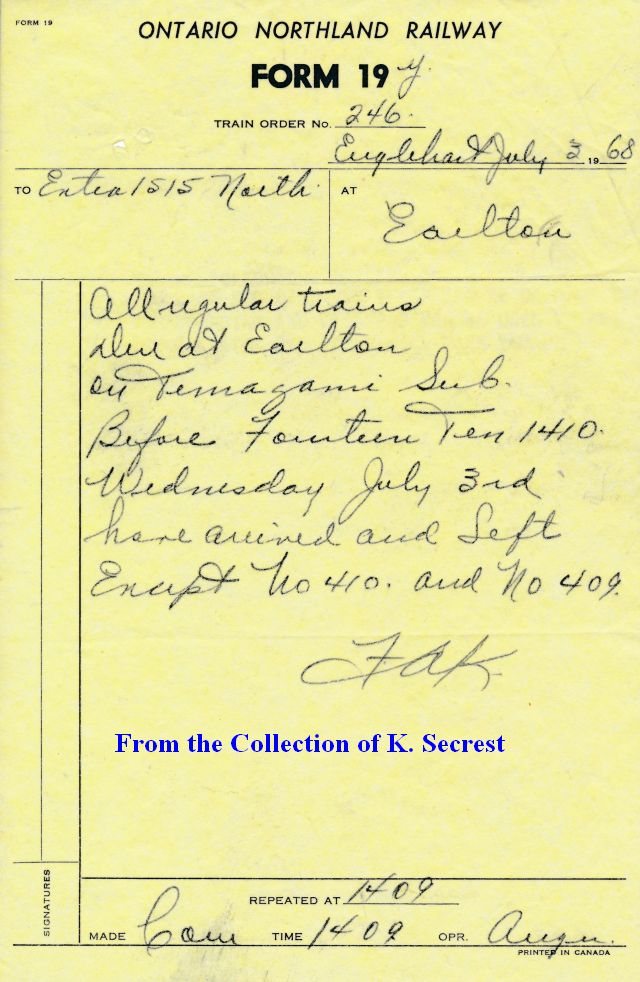 FORM 19
ONTARIO NORTHLAND RAILWAY
FORM 19 y
TRAIN ORDER No. 246.
Englehart July 3 1968
TO Extra 1515 North. AT
Earlton
All regular trains
Due at Earlton
on Temagami Sub.
Before Fourteen Ten 1410.
Wednesday July 3rd
have arrived and Left
Except No 410. and No 409.
FAK
From the Collection of K. Secrest
SIGNATURES
REPEATED AT 1409
MADE Com TIME 1409 OPR.
PRINTED IN CANADA